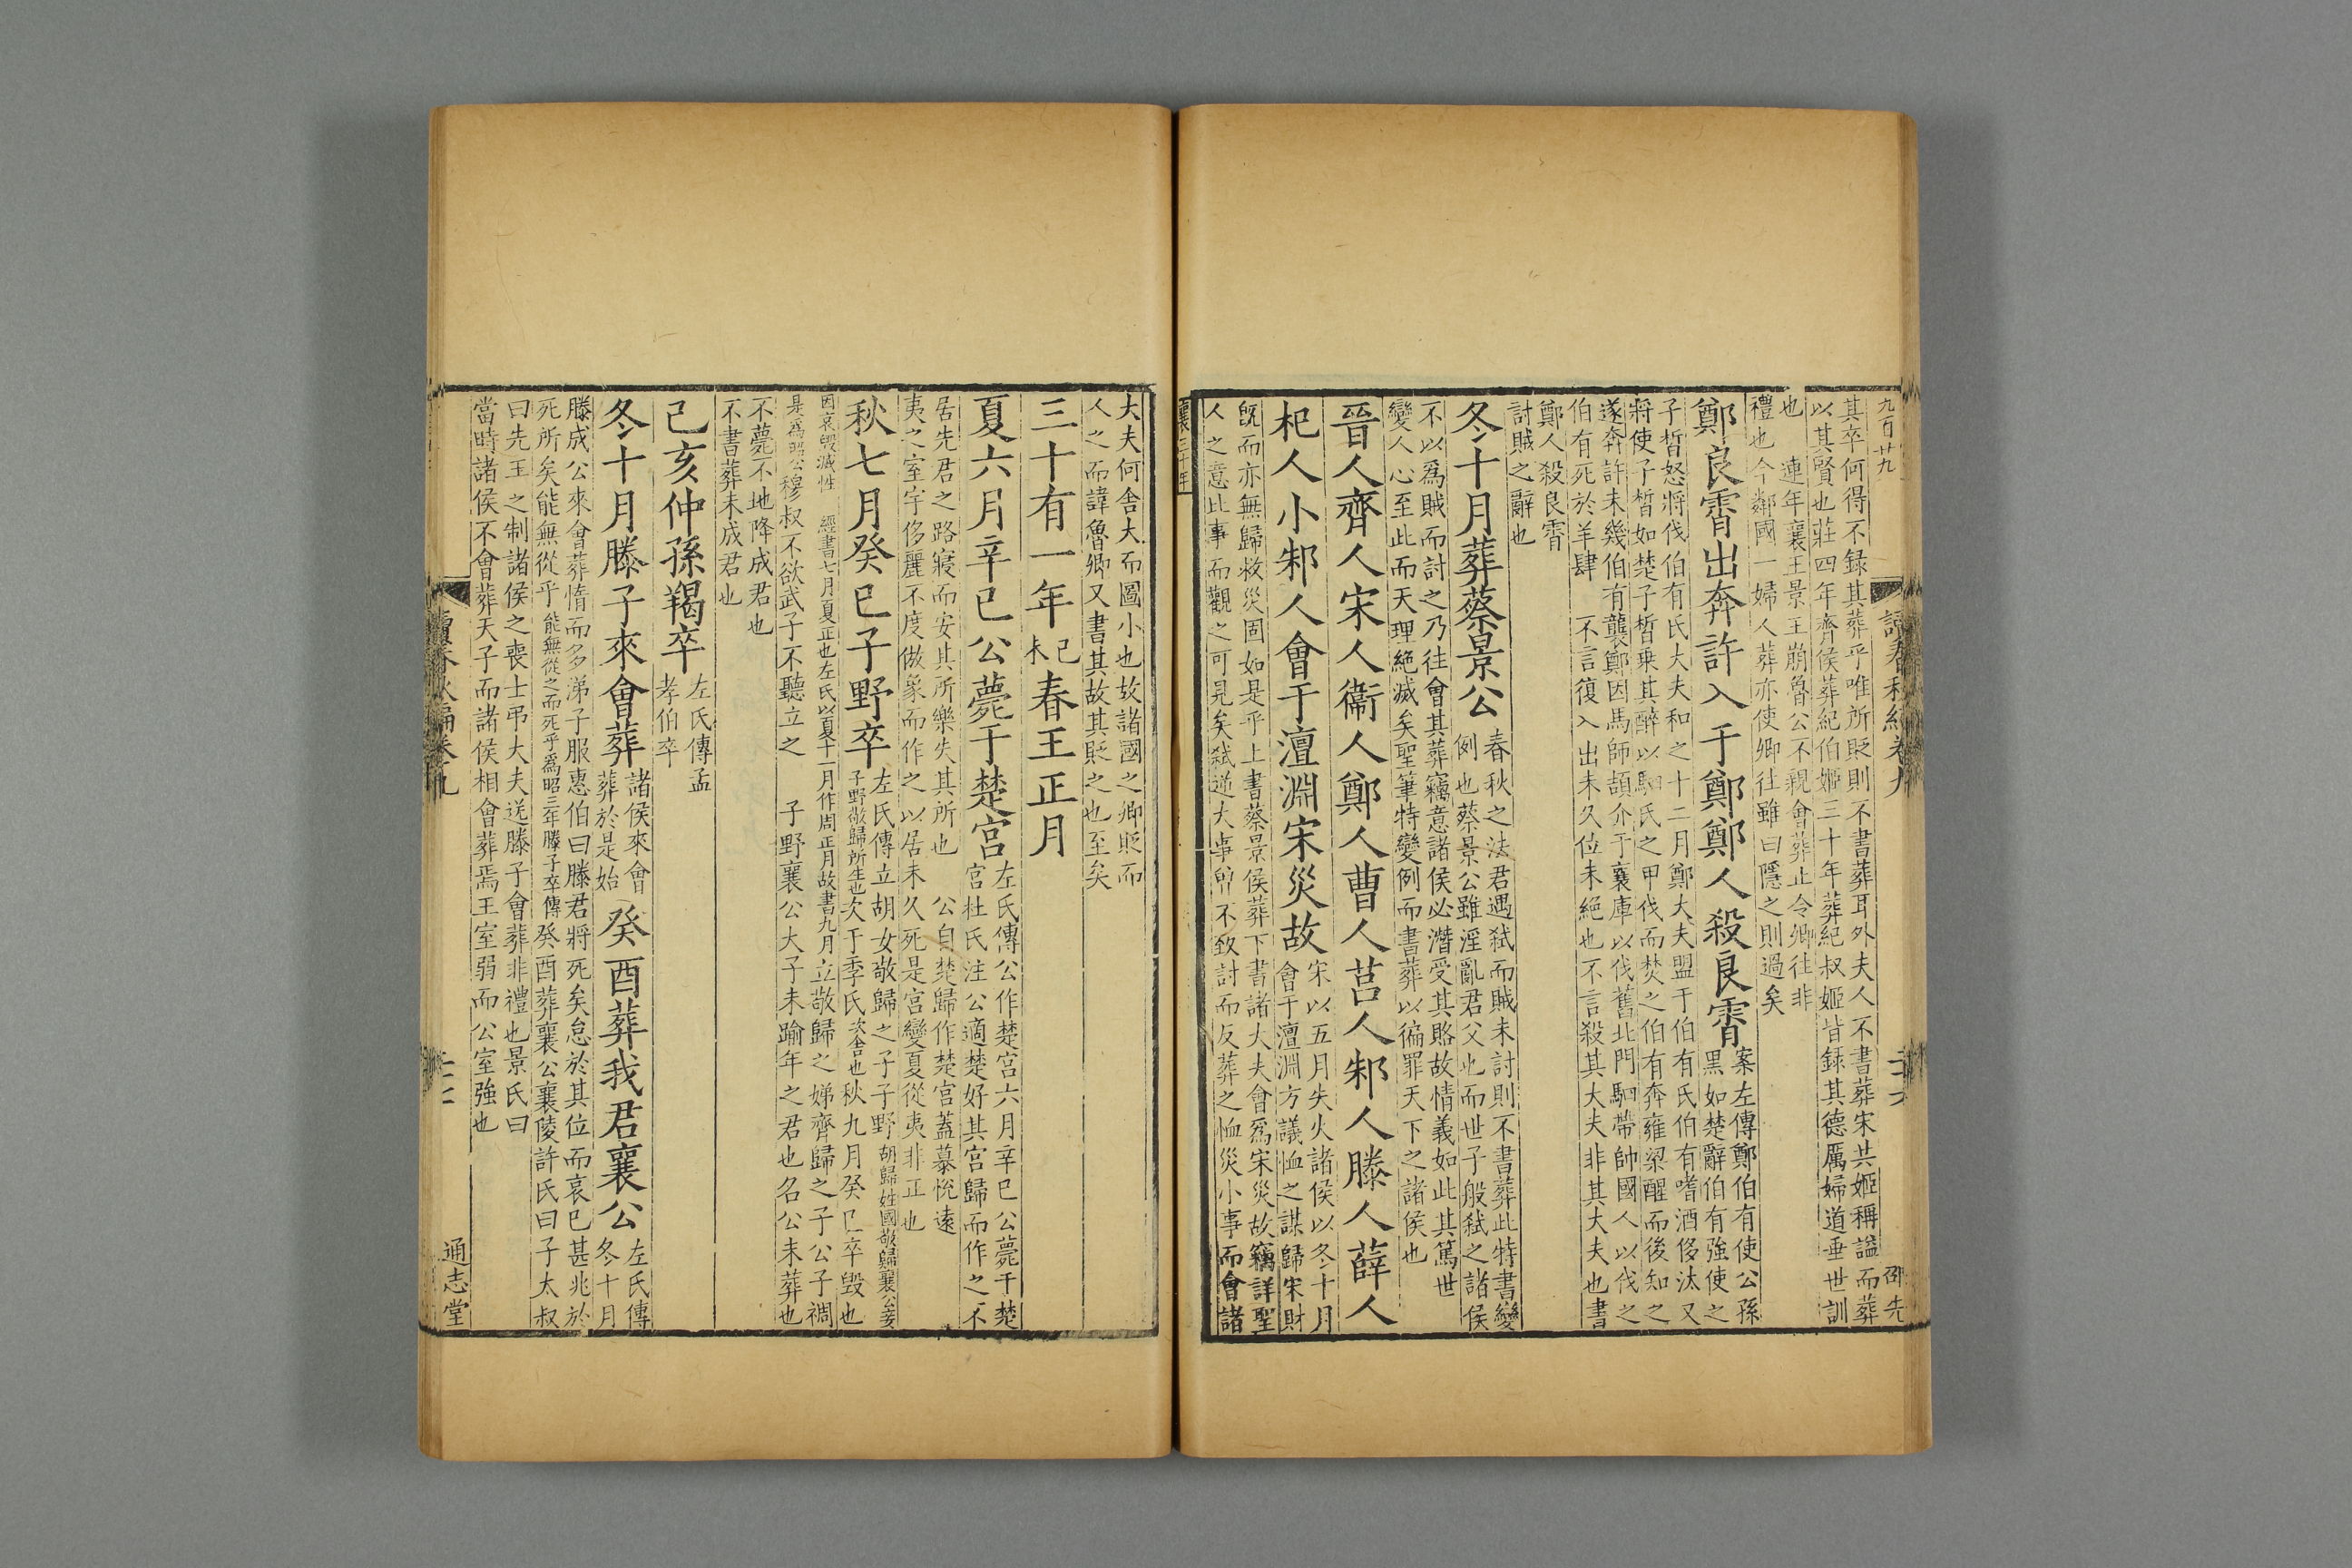 九百廿九
其卒何得不録其葬乎唯所貶則不書葬耳外夫人不書葬宋共姬稱謚而葬
以其賢也莊四年齊侯葬紀伯姬三十年葬紀叔姬皆録其德厲婦道垂世訓
也　連年襄王景王崩魯公不親會葬止令卿往非
禮也今鄰國一婦人葬亦使卿往雖曰隱之則過矣
鄭良霄出奔許入于鄭鄭人殺良霄
案左傳鄭伯有使公孫
黑如楚辭伯有強使之
子晳怒將伐伯有氏大夫和之十二月鄭大夫盟于伯有氏伯有嗜酒侈汰又
將使子晳如楚子晳乗其醉以駟氏之甲伐而焚之伯有奔雍梁醒而後知之
遂奔許未幾伯有襲鄭因馬師頡介于襄庫以伐舊北門駟帶帥國人以伐之
伯有死於羊肆　不言復入出未久位未絕也不言殺其大夫非其大夫也書
鄭人殺良霄
討賊之辭也
冬十月葬蔡景公
春秋之法君遇弑而賊未討則不書葬此特書變
例也蔡景公雖淫亂君父也而世子般弑之諸侯
不以爲賊而討之乃往會其葬竊意諸侯必潛受其賂故情義如此其篤世
變人心至此而天理絕滅矣聖筆特變例而書葬以徧罪天下之諸侯也
晉人齊人宋人衞人鄭人曹人莒人邾人滕人薛人
杞人小邾人會于澶淵宋災故
宋以五月失火諸侯以冬十月
會于澶淵方議恤之謀歸宋財
旣而亦無歸救災固如是乎上書蔡景侯葬下書諸大夫會爲宋災故竊詳聖
人之意此事而觀之可見矣弑逆大事卽不致討而反葬之恤災小事而會諸
襄三十年
大夫何舍大而圖小也故諸國之卿貶而
人之而諱魯卿又書其故其貶之也至矣
三十有一年己未春王正月
夏六月辛巳公薨于楚宮
左氏傳公作楚宮六月辛巳公薨于楚
宮杜氏注公適楚好其宮歸而作之不
居先君之路寢而安其所樂失其所也　公自楚歸作楚宮蓋慕悅遠
夷之室宇侈麗不度倣象而作之以居未久死是宮變夏從夷非正也
秋七月癸巳子野卒
左氏傳立胡女敬歸之子子野胡歸姓國敬歸襄公妾
子野敬歸所生也次于季氏次舍也秋九月癸巳卒毀也
因哀毀滅性　經書七月夏正也左氏以夏十一月作周正月故書九月立敬歸之娣齊歸之子公子裯
是爲昭公穆叔不欲武子不聽立之　子野襄公大子未踰年之君也名公未葬也
不薨不地降成君也
不書葬未成君也
己亥仲孫羯卒
左氏傳孟
孝伯卒
冬十月滕子來會葬
諸侯來會
葬於是始
癸酉葬我君襄公
左氏傳
冬十月
滕成公來會葬惰而多涕子服惠伯曰滕君將死矣怠於其位而哀已甚兆於
死所矣能無從乎能無從之而死乎爲昭三年滕子卒傳癸酉葬襄公襄陵許氏曰子太叔
曰先王之制諸侯之喪士弔大夫送滕子會葬非禮也景氏曰
當時諸侯不會葬天子而諸侯相會葬焉王室弱而公室強也
通志堂